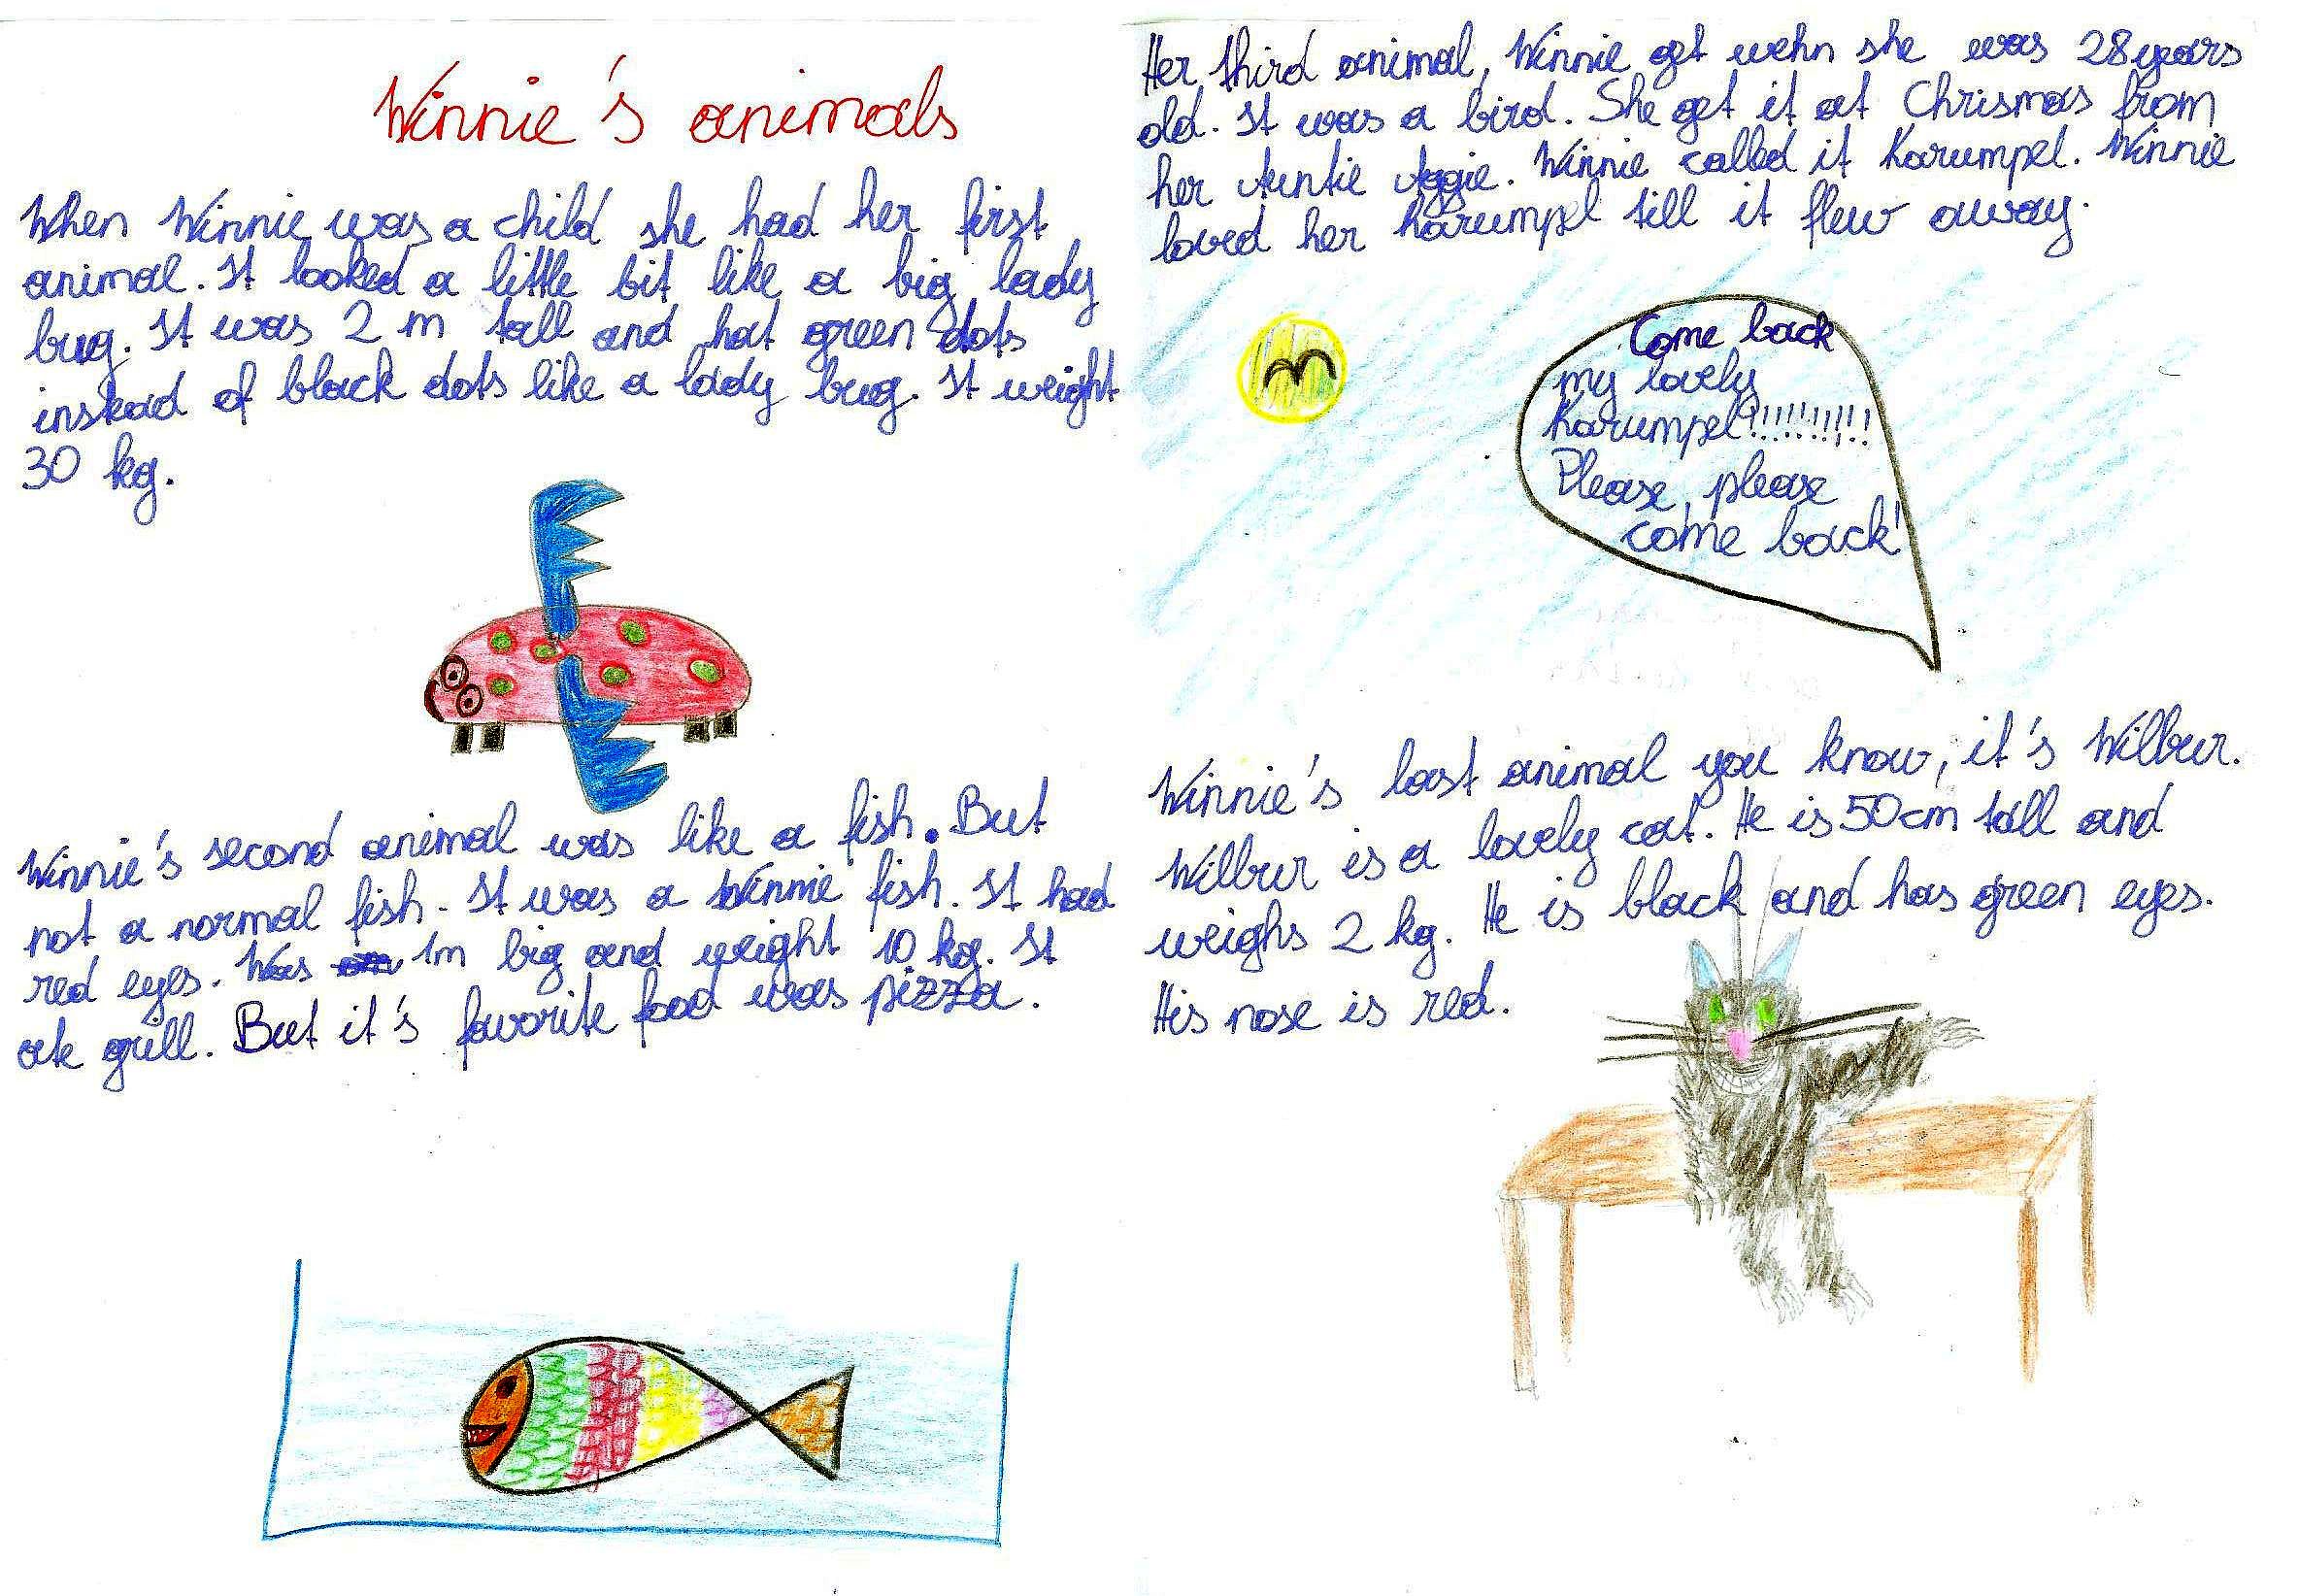 Winnie's animals
When Winnie was a child she had her first
animal. It looked a little bit like a big lady
bug. It was 2 m tall and hat green dots
instead of black dots like a lady bug. It weight
30 kg.
Winnie's second animal was like a fish. But
not a normal fish. It was a Winnie fish. It had
red eyes. Was 1m big and weight 10 kg. It
ate grill. But it's favorite food was pizza.
Her third animal, Winnie get wehn she was 28 years
old. It was a bird. She get it at Chrismas from
her Auntie Aggie. Winnie called it Karumpel. Winnie
loved her Karumpel till it flew away.
Come back
my lovely
Karumpel!!!!!!!!!
Please, please
come back!
Winnie's last animal you know, it's Wilbur.
Wilbur is a lovely cat. He is 50 cm tall and
weighs 2 kg. He is black and has green eyes.
His nose is red.